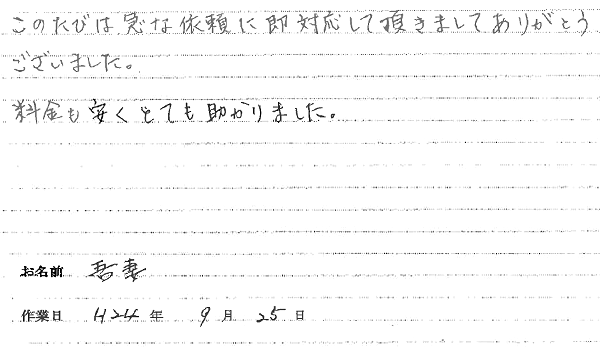 このたびは急な依頼に即対応して頂きましてありがとう
ございました。
料金も安くとても助かりました。
お名前 吾妻
作業日 H24年 9月 25日